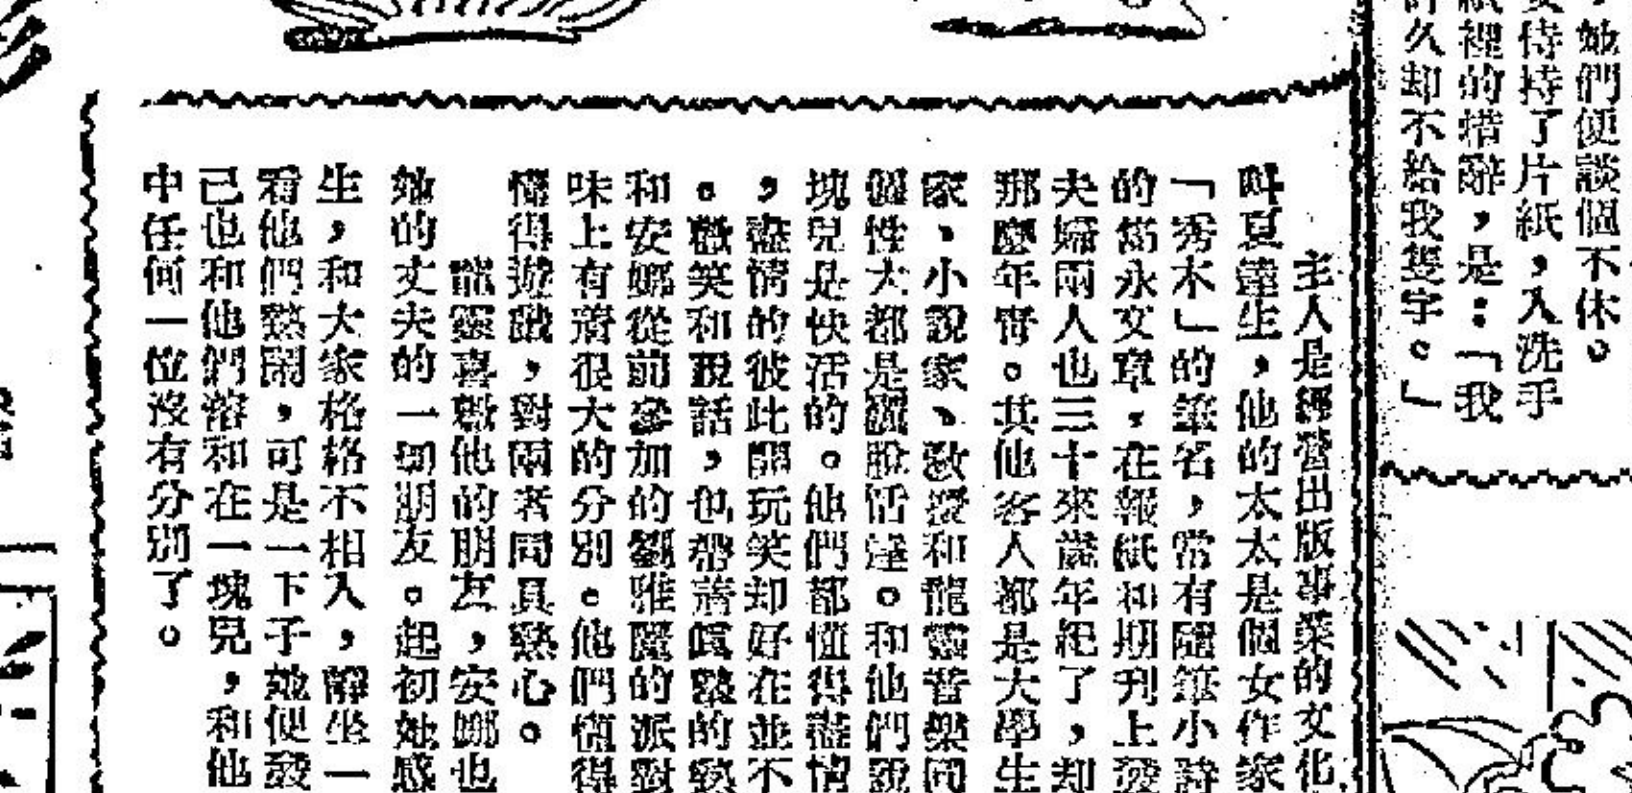 ，她們便談個不休。
侍持了片紙，入洗手
紙裡的措辭，是：「我
許久却不給我隻字。」
主人是經營出版事業的文化
叫夏達生，他的太太是個女作家
「秀木」的筆名，常有隨筆小詩
的當永文章，在報紙和期刊上發
夫婦兩人也三十來歲年紀了，却
那麼年靑。其他客人都是大學生
家、小說家、敎授和龍靈音樂同
個性大都是活潑。和他們說
塊兒是快活的。他們都懂得盡情
，盡情的彼此開玩笑却好在並不
。歡笑和說話，也帶著眞摯的熱
和安娜從前參加的劉雅麗的派對
味上有著很大的分別。他們懂得
懂得遊戲，對兩者同具熱心。
龍靈喜歡他的朋友，安娜也
她的丈夫的一切朋友。起初她感
生，和大家格格不相入，靜坐一
看他們熱鬧，可是一下子她便發
己也和他們溶和在一塊兒，和他
中任何一位沒有分別了。